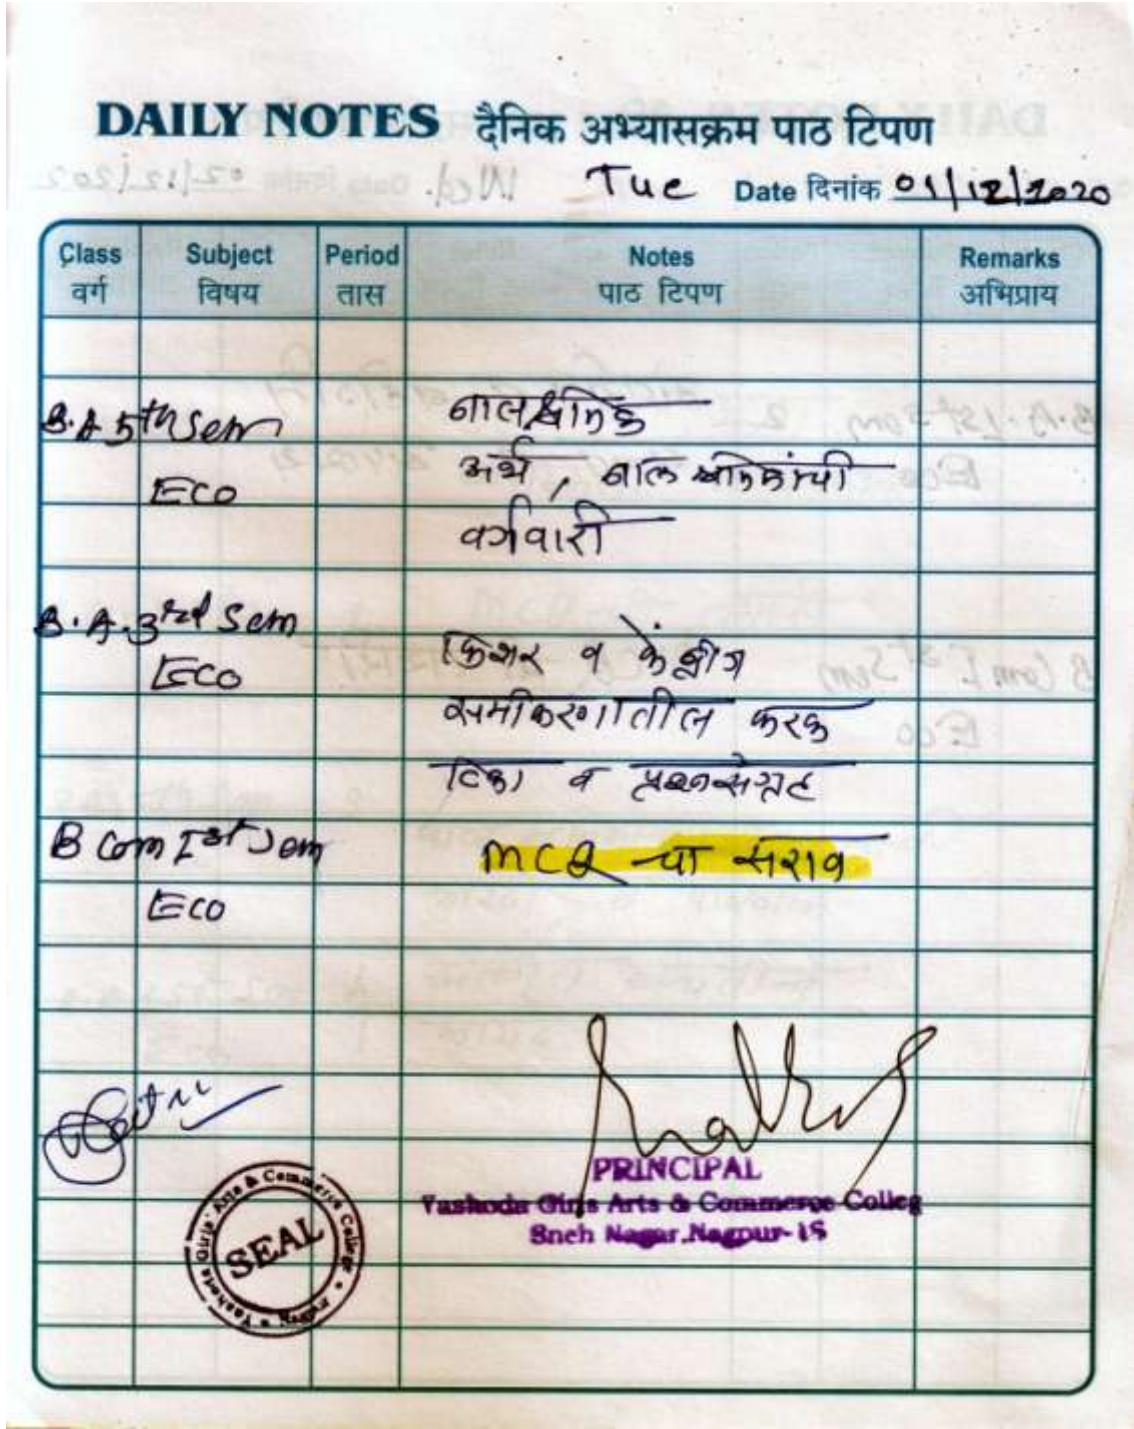 DAILY NOTES दैनिक अभ्यासक्रम पाठ टिपण
Tue Date दिनांक 01/12/2020
Class Subject Period Notes Remarks
वर्ग विषय तास पाठ टिपण अभिप्राय
B.A 5th Sem बालश्रमिक
ECO अर्थ, बाल श्रमिकांची
वर्गवारी
B.A. 3rd Sem
ECO फिशर व केंब्रीज
समीकरणातील फरक
टिका व प्रश्नसंग्रह
B Com Ist Sem MCQ चा सराव
ECO
PRINCIPAL
Yashoda Girls Arts & Commerce Colleg
Sneh Nagar, Nagpur-15
Yashoda Girls' Arts & Commerce College
SEAL